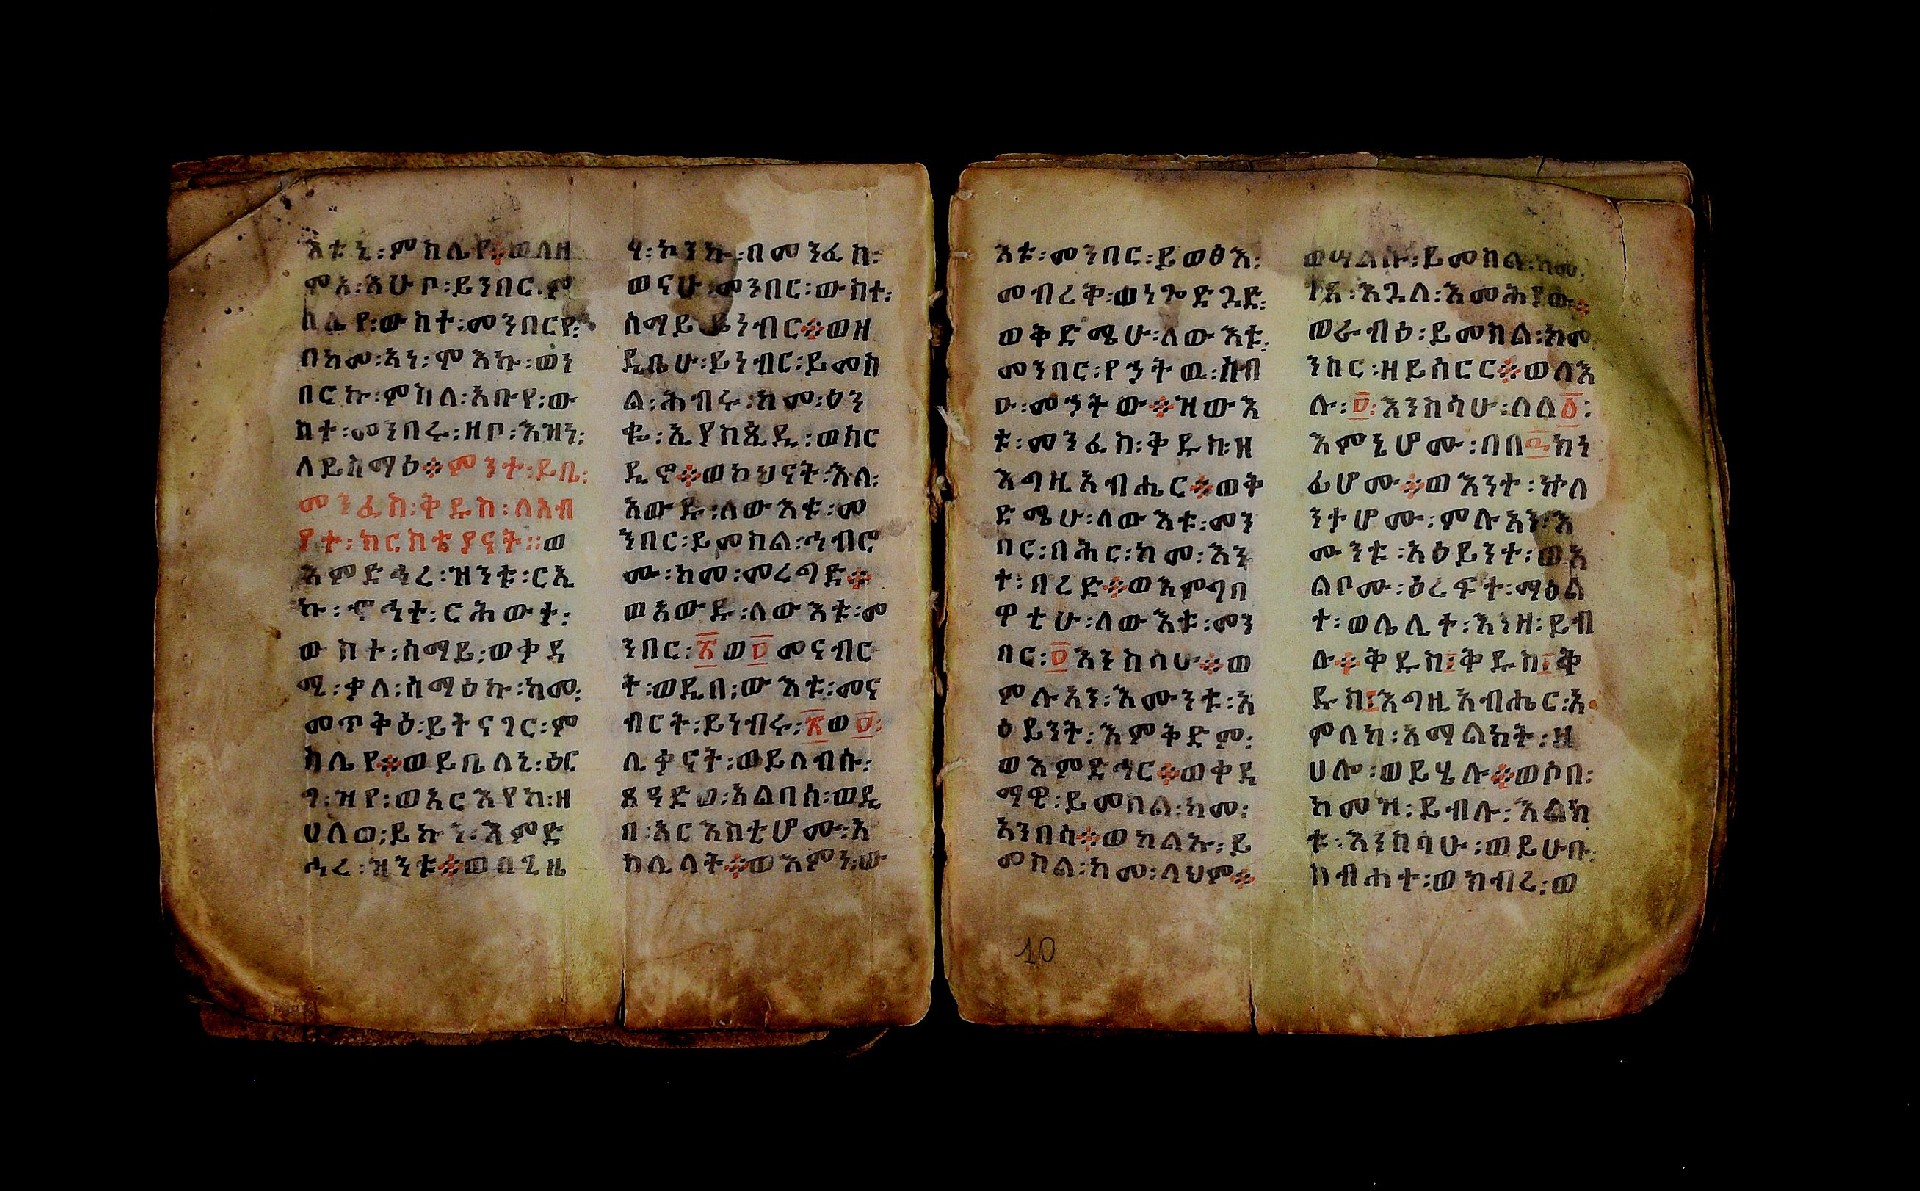 እቱኒ፡ምስሌየ፨ወለዘ
ሞአ፡እሁቦ፡ይንበር፡ም
ስሌየ፡ውስተ፡መንበርየ፡
በከመ፡አነ፡ሞእኩ፡ወነ
በርኩ፡ምስለ፡አቡየ፡ው
ስተ፡መንበሩ፡ዘቦ፡እዝን፡
ለይስማዕ፨ምንተ፡ይቤ፡
መንፈስ፡ቅዱስ፡ለአብ
ያተ፡ክርስቲያናት፡፡ወ
እምድኅረ፡ዝንቱ፡ርኢ
ኩ፡ኆኅተ፡ርሕውተ፡
ውስተ፡ሰማይ፡ወቀዳ
ሚ፡ቃለ፡ሰማዕኩ፡ከመ፡
መጥቅዕ፡ይትናገር፡ም
ስሌየ፨ወይቤለኒ፡ዕር
ግ፡ዝየ፡ወአርእየከ፡ዘ
ሀለወ፡ይኩን፡እምድ
ኅረ፡ዝንቱ፨ወበጊዜ
ሃ፡ኮንኩ፡በመንፈስ፡
ወናሁ፡መንበር፡ውስተ፡
ሰማይ፡ይነብር፨ወዘ
ዲቤሁ፡ይነብር፡ይመስ
ል፡ሕብሩ፡ከመ፡ዕን
ቈ፡ኢያስጲዱ፡ወሰር
ዲኖ፨ወኮህናት፡እለ፡
አውዱ፡ለውእቱ፡መ
ንበር፡ይመስል፡ኅብሮ
ሙ፡ከመ፡መረግድ፨
ወአውዱ፡ለውእቱ፡መ
ንበር፡፳ወ፬መናብር
ት፡ወዲበ፡ውእቱ፡መና
ብርት፡ይነብሩ፡፳ወ፬፡
ሊቃናት፡ወይለብሱ፡
ጸዓድወ፡አልባሰ፡ወዲ
በ፡አርእስቲሆሙ፡አ
ክሊላት፨ወእምን፡ው
እቱ፡መንበር፡ይወፅእ፡
መብረቅ፡ወነጐድጓድ፡
ወቅድሜሁ፡ለውእቱ፡
መንበር፡የኃትዉ፡ሰብ
ዑ፡መኃትው፨ዝውእ
ቱ፡መንፈስ፡ቅዱስ፡ዘ
እግዚአብሔር፨ወቅ
ድሜሁ፡ለውእቱ፡መን
በር፡በሕር፡ከመ፡እን
ተ፡በረድ፨ወእምገበ
ዋቲሁ፡ለውእቱ፡መን
በር፡፬እንስሳሁ፨ወ
ምሉአን፡እሙንቱ፡አ
ዕይንት፡እምቅድም፡
ወእምድኅር፨ወቀዲ
ማዊ፡ይመስል፡ከመ፡
አንበሳ፨ወካልኡ፡ይ
መስል፡ከመ፡ላህም፨
ወሣልሱ፡ይመስል፡ከመ፡
ገጸ፡እጓለ፡እመሕያው፨
ወራብዕ፡ይመስል፡ከመ
ንስር፡ዘይሰርር፨ወለእ
ሉ፡፬፡እንስሳሁ፡ለለ፩፡
እምኒሆሙ፡በበ፮ክን
ፊሆሙ፨ወእንተ፡ኵለ
ንተሆሙ፡ምሉአን፡እ
ሙንቱ፡አዕይንተ፡ወአ
ልቦሙ፡ዕረፍተ፡ማዕል
ተ፡ወሌሊተ፡እንዘ፡ይብ
ሉ፨ቅዱስ፡ቅዱስ፡ቅ
ዱስ፡እግዚአብሔር፡አ
ምላከ፡አማልክት፡ዘ
ሀሎ፡ወይሄሉ፨ወሶበ፡
ከመዝ፡ይብሉ፡እልክ
ቱ፡እንስሳሁ፡ወይሁቡ፡
ስብሐተ፡ወክብረ፡ወ
10